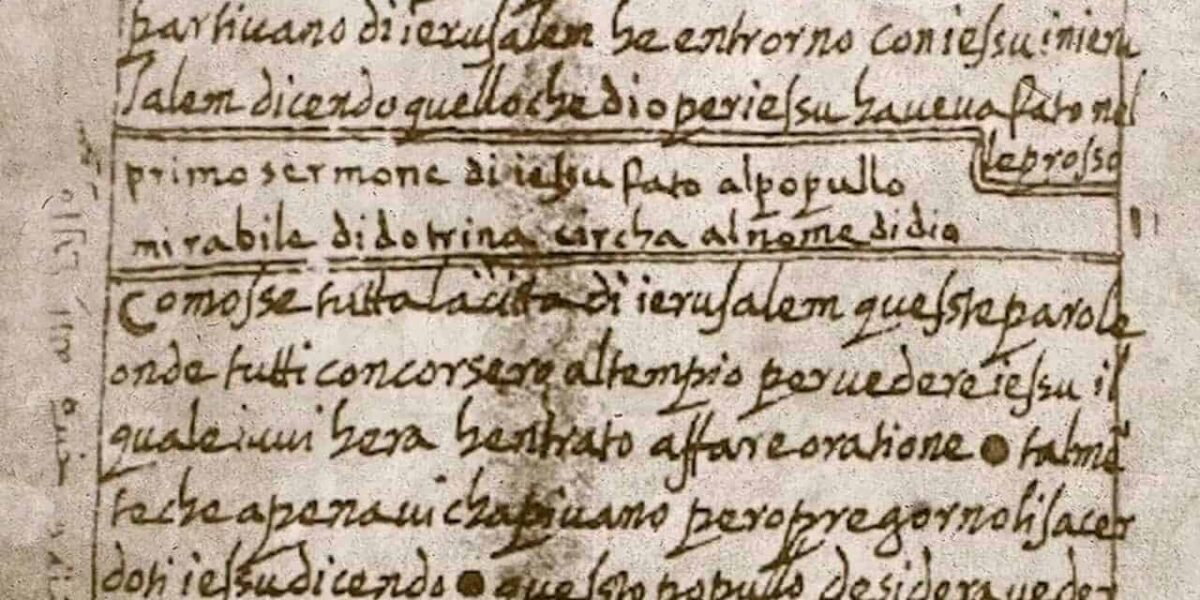 partiuano di ierusalem he entrorno con iessu in ieru
salem dicendo quello che dio per iessu haueua fato nel
leprosso
primo sermone di iessu fato al popullo
mirabile di dotrina circha al nome di dio
Comosse tutta la citta di ierusalem quesste parole
onde tutti concorsero al tempio per uedere iessu il
quale iui hera hentrato affare oratione ● talmē
te che apena ui chapiuano pero pregorno li sacer
doti iessu dicendo ● quessto popullo desidera ueder